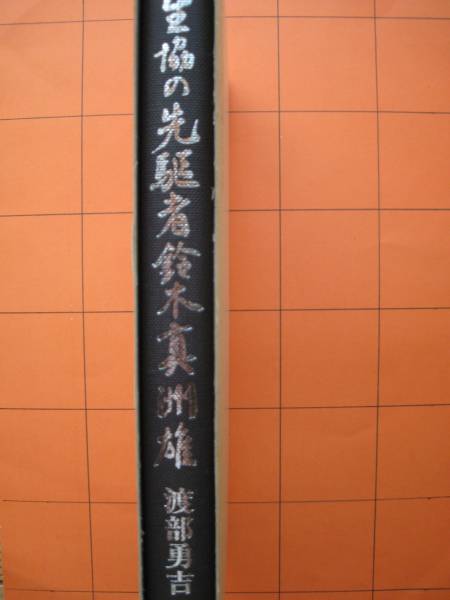 生協の先駆者鈴木真洲雄
渡部勇吉